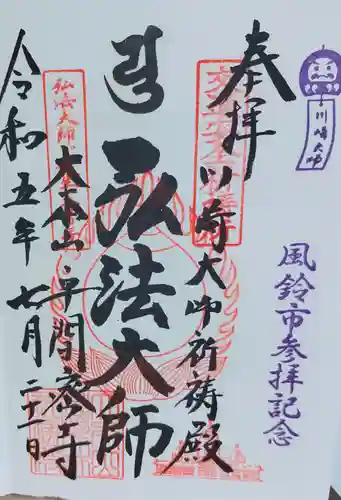 川崎大師
風鈴市参拝記念
奉拝
川崎大師祈祷殿
弘法大師
大本山平間寺
令和五年七月二十一日